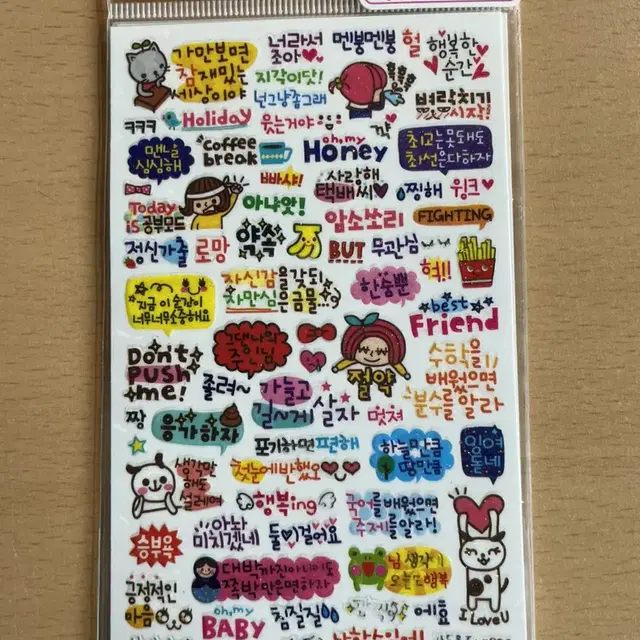 가만보면
참 재밌는
세상이야
너라서
좋아
멘붕멘붕
헐
행복한
순간
지각이닷!
넌그냥좀그래
흑흑흑
벼락치기
시작!
ㅋㅋㅋ
Holiday
웃는거야
꺅
맨날
심심해
coffee
break
oh, my
Honey
최고는못돼도
최선은다하자
빠샤!
사랑해
택배씨
찡해
윙크
Today
is 공부모드
아냐앗!
암소쏘리
FIGHTING
정신가출
로망
야쏙
BUT
무관심
헉!!
지금 이 순간이
너무너무소중해요
자신감을갖되
자만심은금물
한숨뿐
best
Friend
그댄나의
주인님
Don't
Push
me!
졸려~
가늘고
길~게
살자
절약
멋쪄
수학을
배웠으면
분수를알라
짱
응가하자
포기하면편해
하늘만큼
땅만큼
잉여
돋네
생각만
해도
설레여
첫눈에반했오
행복ing
국어를배웠으면
주제를알라!
승부욕
아놔
미치겠네
둘이걸어요
대박까진아니어도
쪽박만은면하자
님 생각에
오늘도행복
I Love U
긍정적인
마음
oh, my
BABY
침질질
에효